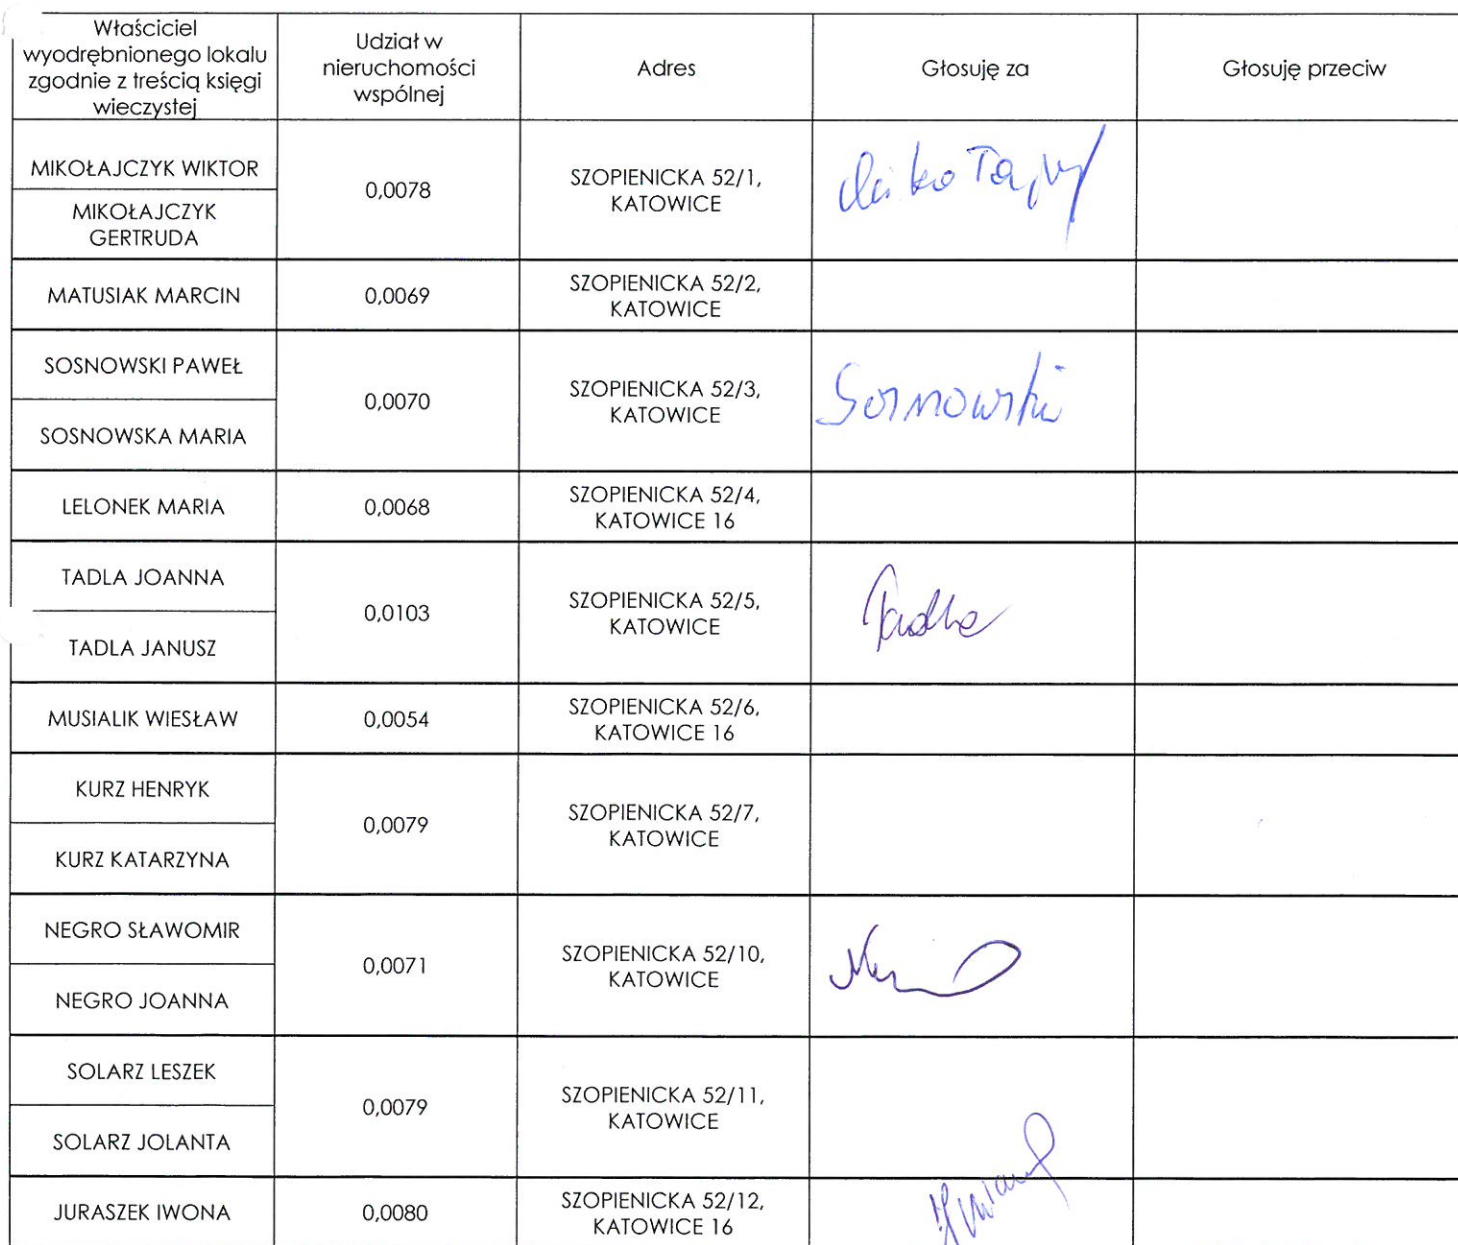 Właściciel
wyodrębnionego lokalu
zgodnie z treścią księgi
wieczystej
Udział w
nieruchomości
wspólnej
Adres
Głosuję za
Głosuję przeciw
MIKOŁAJCZYK WIKTOR
MIKOŁAJCZYK
GERTRUDA
0,0078
SZOPIENICKA 52/1,
KATOWICE
MATUSIAK MARCIN
0,0069
SZOPIENICKA 52/2,
KATOWICE
SOSNOWSKI PAWEŁ
SOSNOWSKA MARIA
0,0070
SZOPIENICKA 52/3,
KATOWICE
Sosnowski
LELONEK MARIA
0,0068
SZOPIENICKA 52/4,
KATOWICE 16
TADLA JOANNA
TADLA JANUSZ
0,0103
SZOPIENICKA 52/5,
KATOWICE
Tadla
MUSIALIK WIESŁAW
0,0054
SZOPIENICKA 52/6,
KATOWICE 16
KURZ HENRYK
KURZ KATARZYNA
0,0079
SZOPIENICKA 52/7,
KATOWICE
NEGRO SŁAWOMIR
NEGRO JOANNA
0,0071
SZOPIENICKA 52/10,
KATOWICE
SOLARZ LESZEK
SOLARZ JOLANTA
0,0079
SZOPIENICKA 52/11,
KATOWICE
JURASZEK IWONA
0,0080
SZOPIENICKA 52/12,
KATOWICE 16